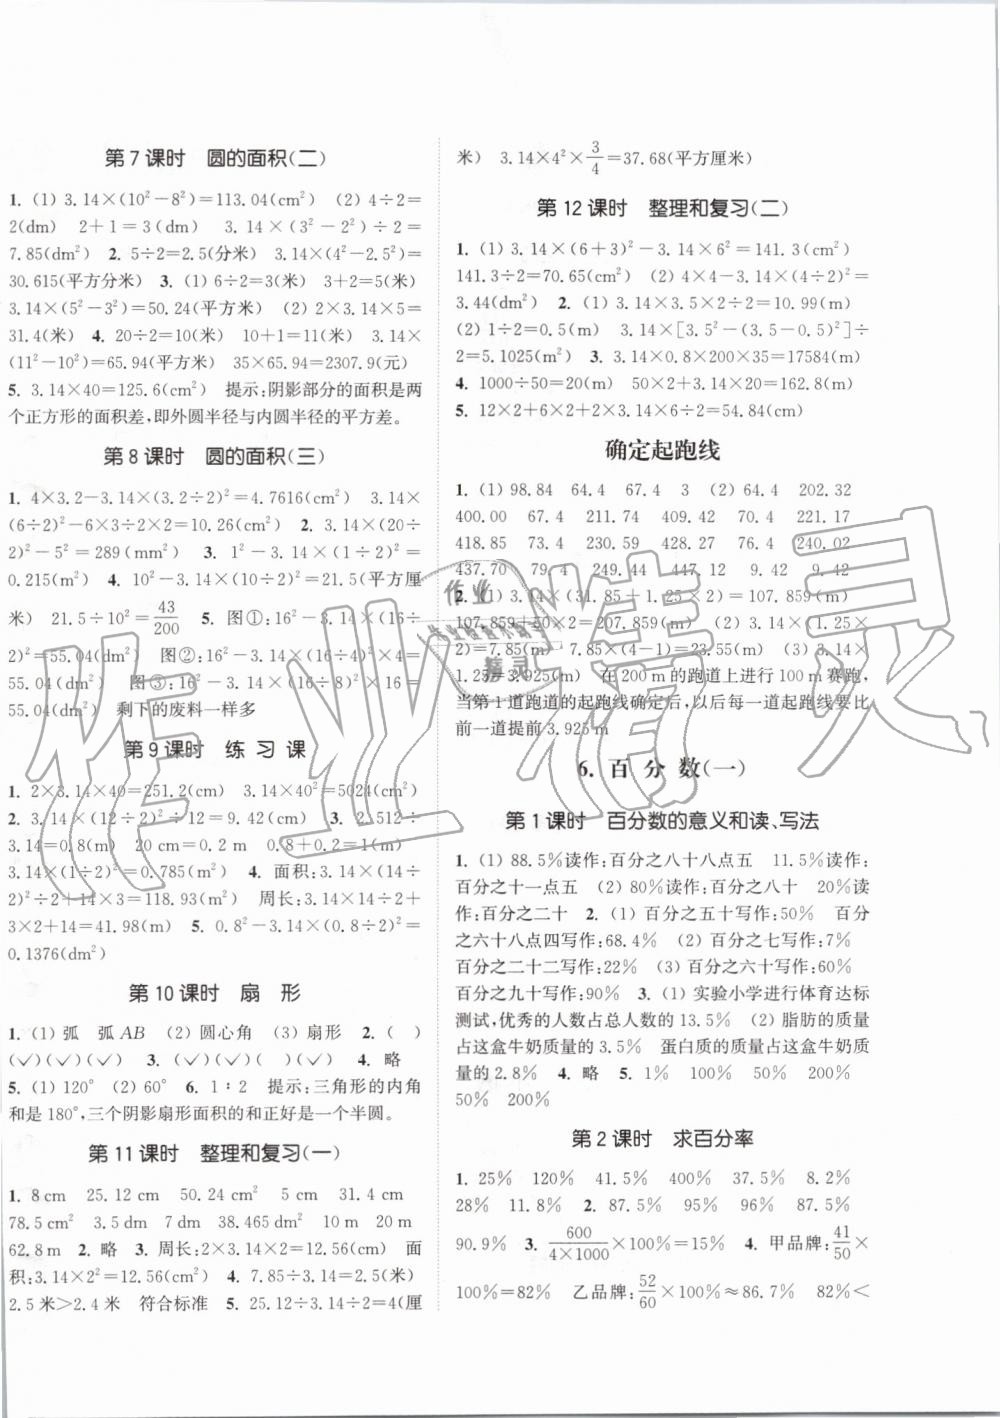 第7课时 圆的面积(二)
1. (1) 3.14×(10²-8²)=113.04(cm²) (2) 4÷2=
2(dm) 2+1=3(dm) 3.14×(3²-2²)÷2=
7.85(dm²) 2. 5÷2=2.5(分米) 3.14×(4²-2.5²)=
30.615(平方分米) 3. (1) 6÷2=3(米) 3+2=5(米)
3.14×(5²-3²)=50.24(平方米) (2) 2×3.14×5=
31.4(米) 4. 20÷2=10(米) 10+1=11(米) 3.14×
(11²-10²)=65.94(平方米) 35×65.94=2307.9(元)
5. 3.14×40=125.6(cm²) 提示:阴影部分的面积是两
个正方形的面积差,即外圆半径与内圆半径的平方差。
第8课时 圆的面积(三)
1. 4×3.2-3.14×(3.2÷2)²=4.7616(cm²) 3.14×
(6÷2)²-6×3÷2×2=10.26(cm²) 2. 3.14×(20÷
2)²-5²=289(mm²) 3. 1²-3.14×(1÷2)²=
0.215(m²) 4. 10²-3.14×(10÷2)²=21.5(平方厘
米) 21.5÷10²=43/200 5. 图①:16²-3.14×(16÷
2)²=55.04(dm²) 图②:16²-3.14×(16÷4÷2)²×4=
55.04(dm²) 图③:16²-3.14×(16÷8÷2)²×
55.04(dm²) 剩下的废料一样多
第9课时 练习课
1. 2×3.14×40=251.2(cm) 3.14×40²=5024(cm²)
2. 3.14×(12÷2)²÷2=56.52(cm²) 3. 2.512÷
3.14=0.8(m) 20 cm=0.2 m 0.8+0.2=1(m)
3.14×(1÷2)²=0.785(m²) 4. 面积:3.14×(14÷
2)²÷2+14×3=118.93(m²) 周长:3.14×14÷2+
3×2+14=41.98(m) 5. 0.8²-3.14×(0.8÷2)²=
0.1376(dm²)
第10课时 扇形
1. (1) 弧 弧AB (2) 圆心角 (3) 扇形 2. ( )
(✓)(✓)(✓) 3. (✓)(✓)( )(✓) 4. 略
5. (1) 120° (2) 60° 6. 1∶2 提示:三角形的内角
和是180°,三个阴影扇形面积的和正好是一个半圆。
第11课时 整理和复习(一)
1. 8 cm 25.12 cm 50.24 cm² 5 cm 31.4 cm
78.5 cm² 3.5 dm 7 dm 38.465 dm² 10 m 20 m
62.8 m 2. 略 3. 周长:2×3.14×2=12.56(cm) 面
积:3.14×2²=12.56(cm²) 4. 7.85÷3.14=2.5(米)
2.5米>2.4米 符合标准 5. 25.12÷3.14÷2=4(厘
米) 3.14×4²×3/4=37.68(平方厘米)
第12课时 整理和复习(二)
1. (1) 3.14×(6+3)²-3.14×6²=141.3(cm²)
141.3÷2=70.65(cm²) (2) 4×4-3.14×(4÷2)²=
3.44(dm²) 2. (1) 3.14×3.5×2÷2=10.99(m)
(2) 1÷2=0.5(m) 3.14×[3.5²-(3.5-0.5)²]÷
2=5.1025(m²) 3. 3.14×0.8×200×35=17584(m)
4. 1000÷50=20(m) 50×2+3.14×20=162.8(m)
5. 12×2+6×2+2×3.14×6÷2=54.84(cm)
确定起跑线
1. (1) 98.84 64.4 67.4 3 (2) 64.4 202.32
400.00 67.4 211.74 409.42 70.4 221.17
418.85 73.4 230.59 428.27 76.4 240.02
437.70 79.4 249.44 447.12 9.42 9.42
2. (1) 3.14×(31.85+1.25×2)=107.859(m)
107.859+50×2=207.859(m) (2) 3.14×(1.25×
2)=7.85(m) 7.85×(4-1)=23.55(m) (3) 3.14×
1.25=3.925(m) 在200 m的跑道上进行100 m赛跑,
当第1道跑道的起跑线确定后,以后每一道起跑线要比
前一道提前3.925 m
6. 百分数(一)
第1课时 百分数的意义和读、写法
1. (1) 88.5%读作:百分之八十八点五 11.5%读作:
百分之十一点五 (2) 80%读作:百分之八十 20%读
作:百分之二十 2. (1) 百分之五十写作:50% 百分
之六十八点四写作:68.4% (2) 百分之七写作:7%
百分之二十二写作:22% (3) 百分之六十写作:60%
百分之九十写作:90% 3. (1) 实验小学进行体育达标
测试,优秀的人数占总人数的13.5% (2) 脂肪的质量
占这盒牛奶质量的3.5% 蛋白质的质量占这盒牛奶质
量的2.8% 4. 略 5. 1% 100% 85% 100%
50% 200%
第2课时 求百分率
1. 25% 120% 41.5% 400% 37.5% 8.2%
28% 11.8% 2. 87.5% 95% 96% 87.5%
90.9% 3. 600/(4×1000)×100%=15% 4. 甲品牌:41/50×
100%=82% 乙品牌:52/60×100%≈86.7% 82%<
作业精灵
作业精灵